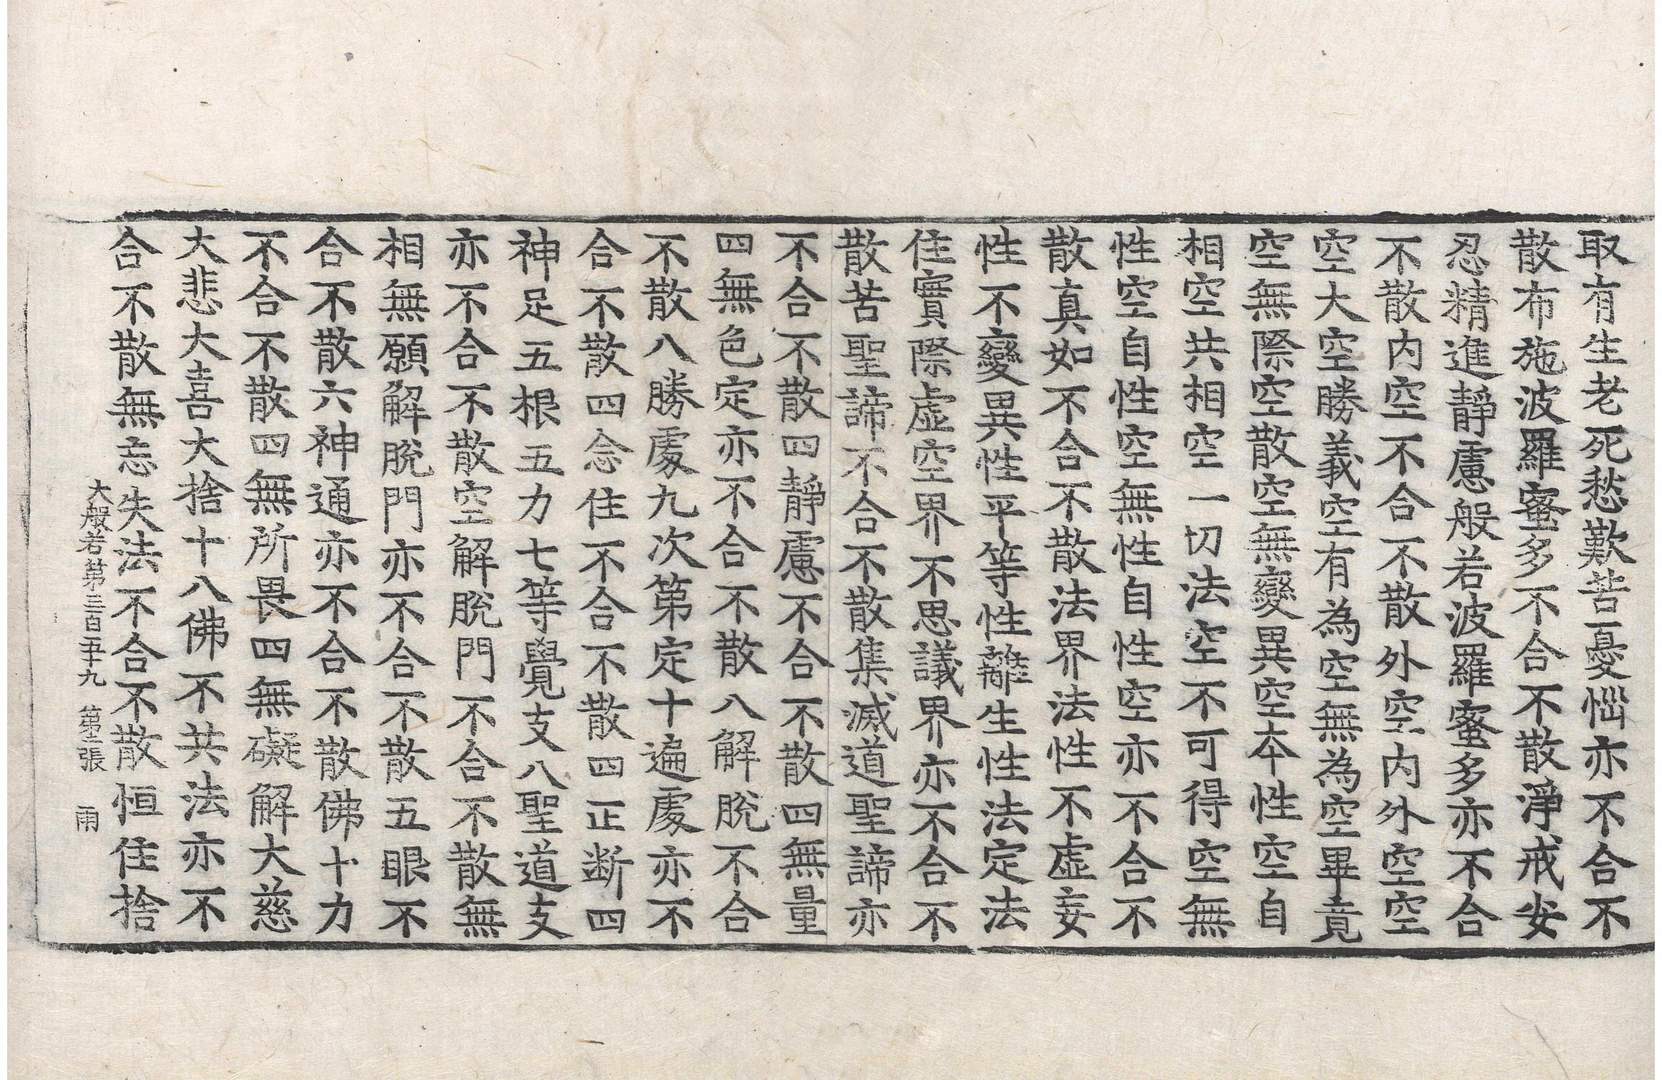 取有生老死愁歎苦憂惱亦不合不
散布施波羅蜜多不合不散淨戒安
忍精進靜慮般若波羅蜜多亦不合
不散內空不合不散外空內外空空
空大空勝義空有為空無為空畢竟
空無際空散空無變異空本性空自
相空共相空一切法空不可得空無
性空自性空無性自性空亦不合不
散真如不合不散法界法性不虛妄
性不變異性平等性離生性法定法
住實際虛空界不思議界亦不合不
散苦聖諦不合不散集滅道聖諦亦
不合不散四靜慮不合不散四無量
四無色定亦不合不散八解脫不合
不散八勝處九次第定十遍處亦不
合不散四念住不合不散四正斷四
神足五根五力七等覺支八聖道支
亦不合不散空解脫門不合不散無
相無願解脫門亦不合不散五眼不
合不散六神通亦不合不散佛十力
不合不散四無所畏四無礙解大慈
大悲大喜大捨十八佛不共法亦不
合不散無忘失法不合不散恒住捨
大般若第三百五十九 第二張 雨